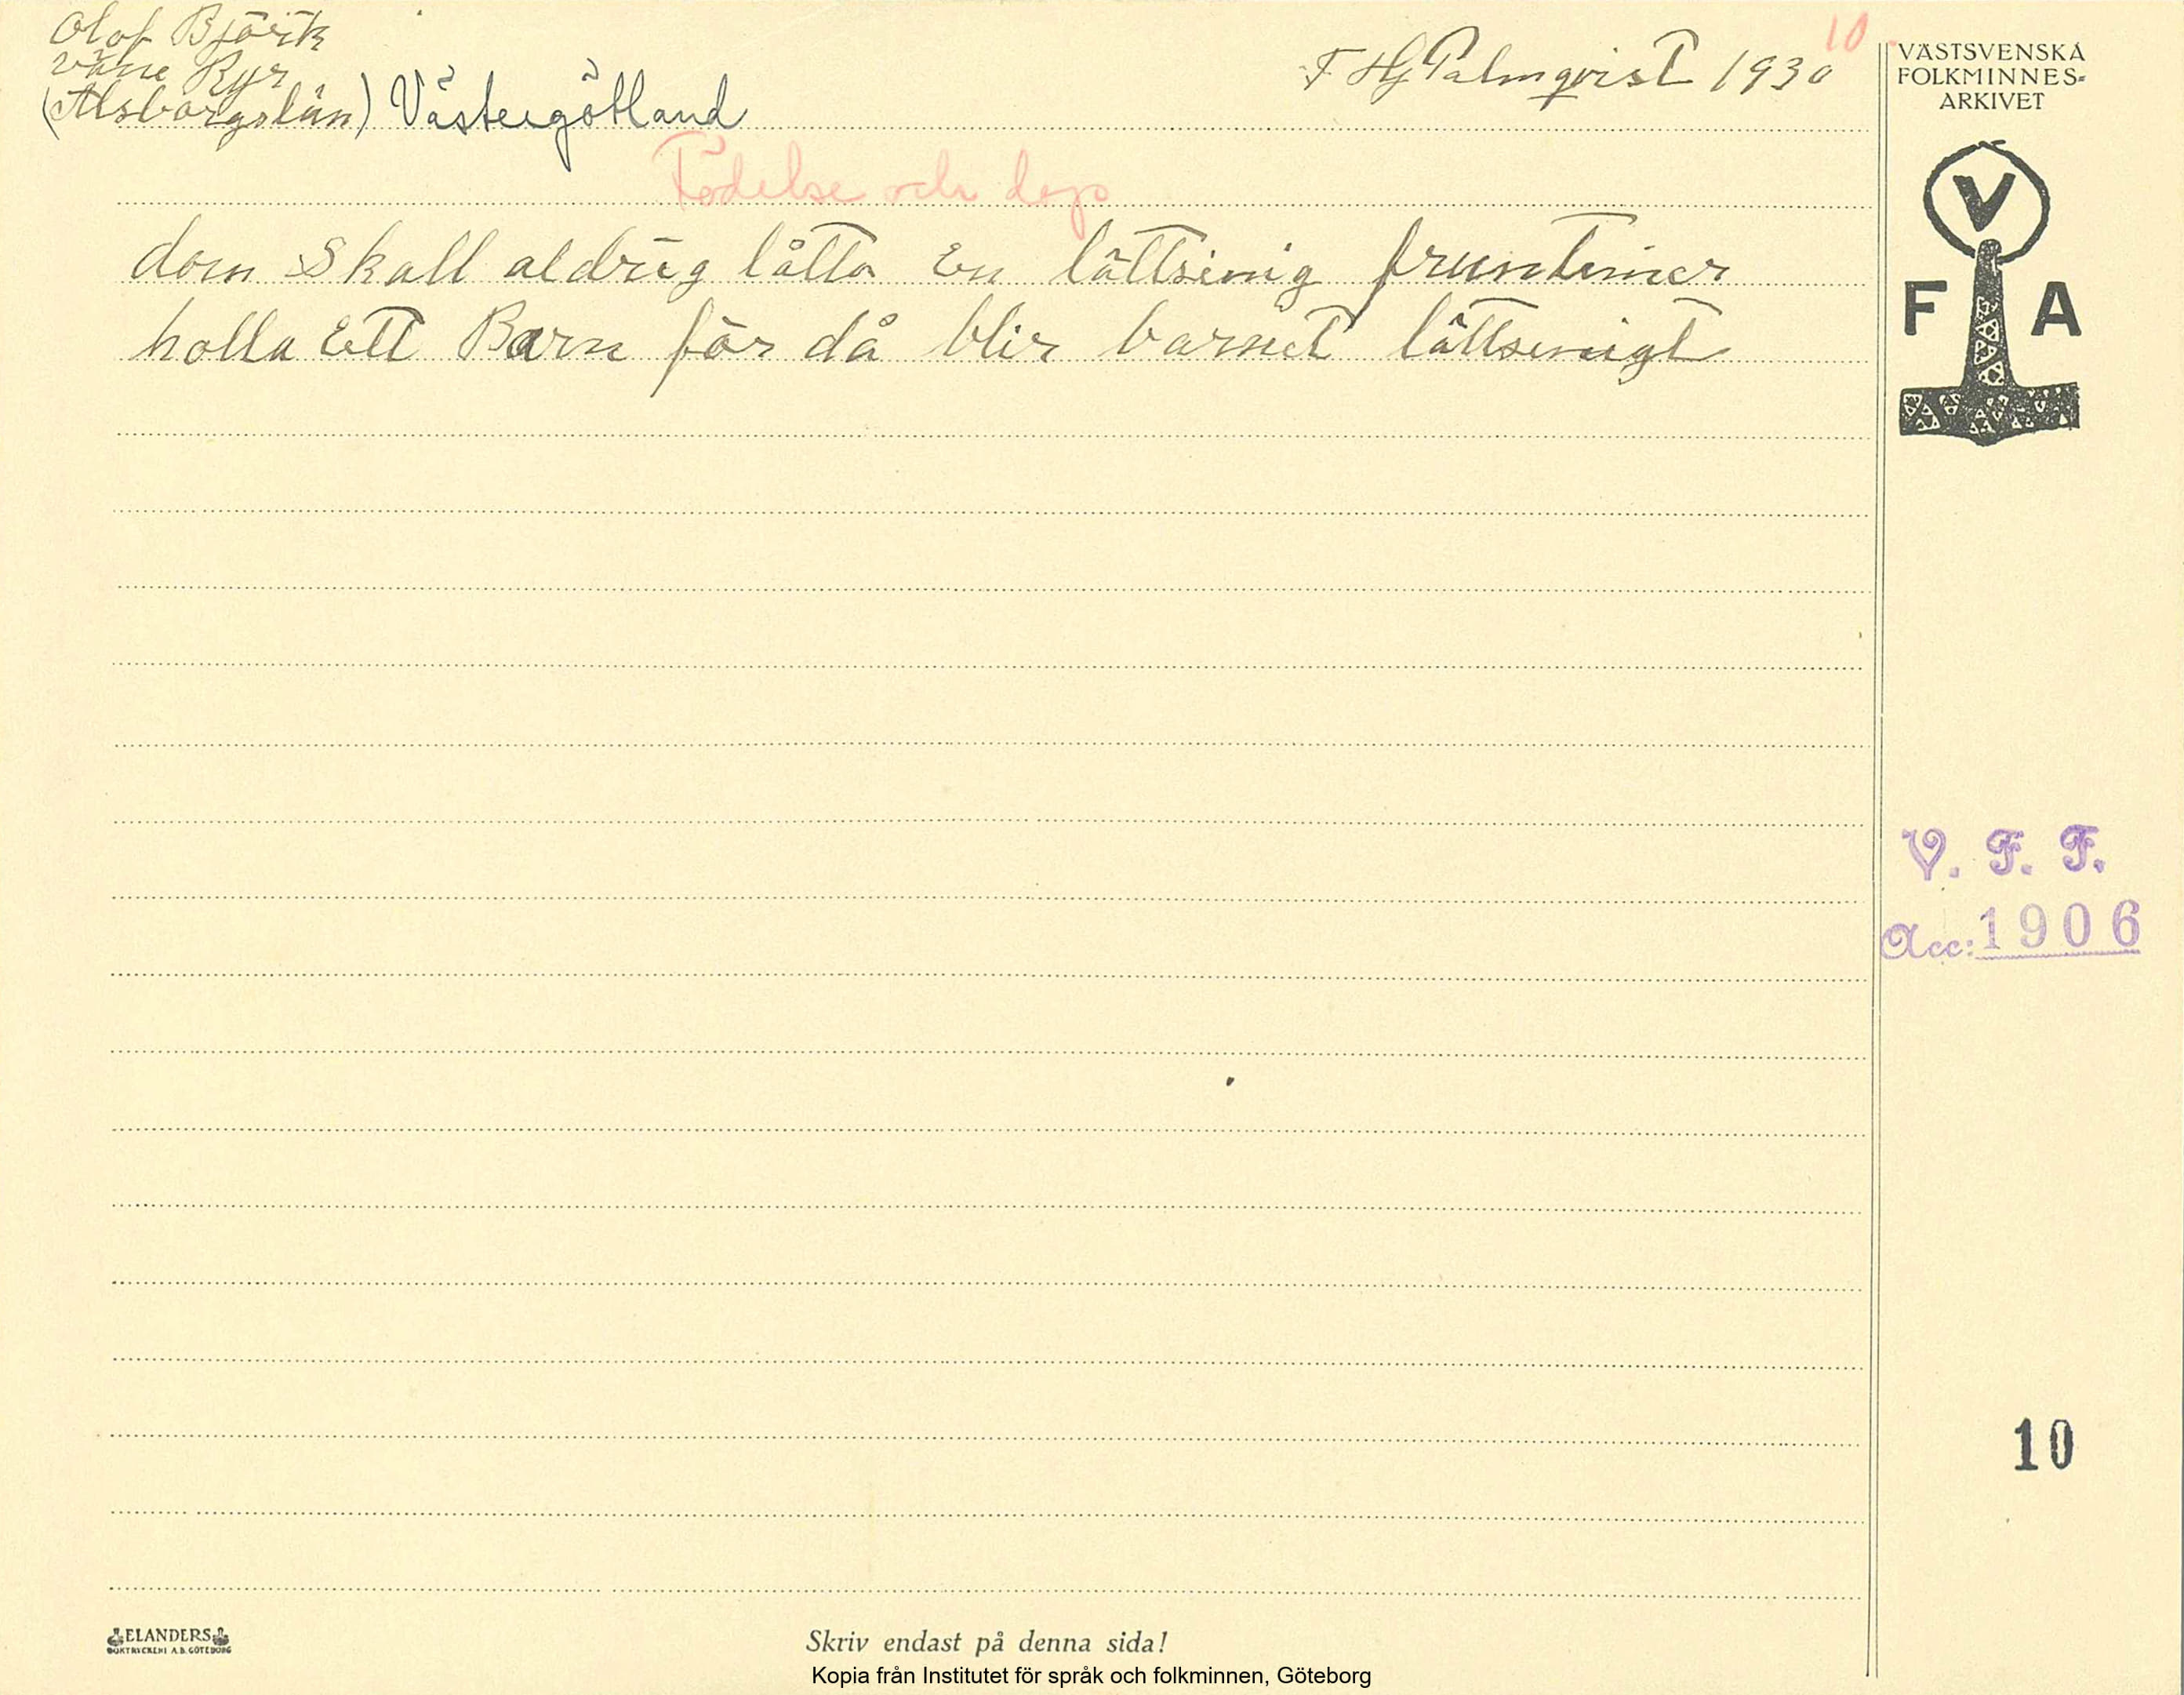 Olof Björk
Väne Ryr
(Älsborgslän) Västergötland
F Hj Palmqvist 1930
10
VÄSTSVENSKA
FOLKMINNES-
ARKIVET
V
F A
Födelse och dop
dom Skall aldrig låtta En lättsinig fruntimer
holla Ett Barn för då blir barnet lättsinigt
V. F. F.
Acc: 1906
10
ELANDERS
BOKTRYCKERI A.B. GÖTEBORG
Skriv endast på denna sida!
Kopia från Institutet för språk och folkminnen, Göteborg